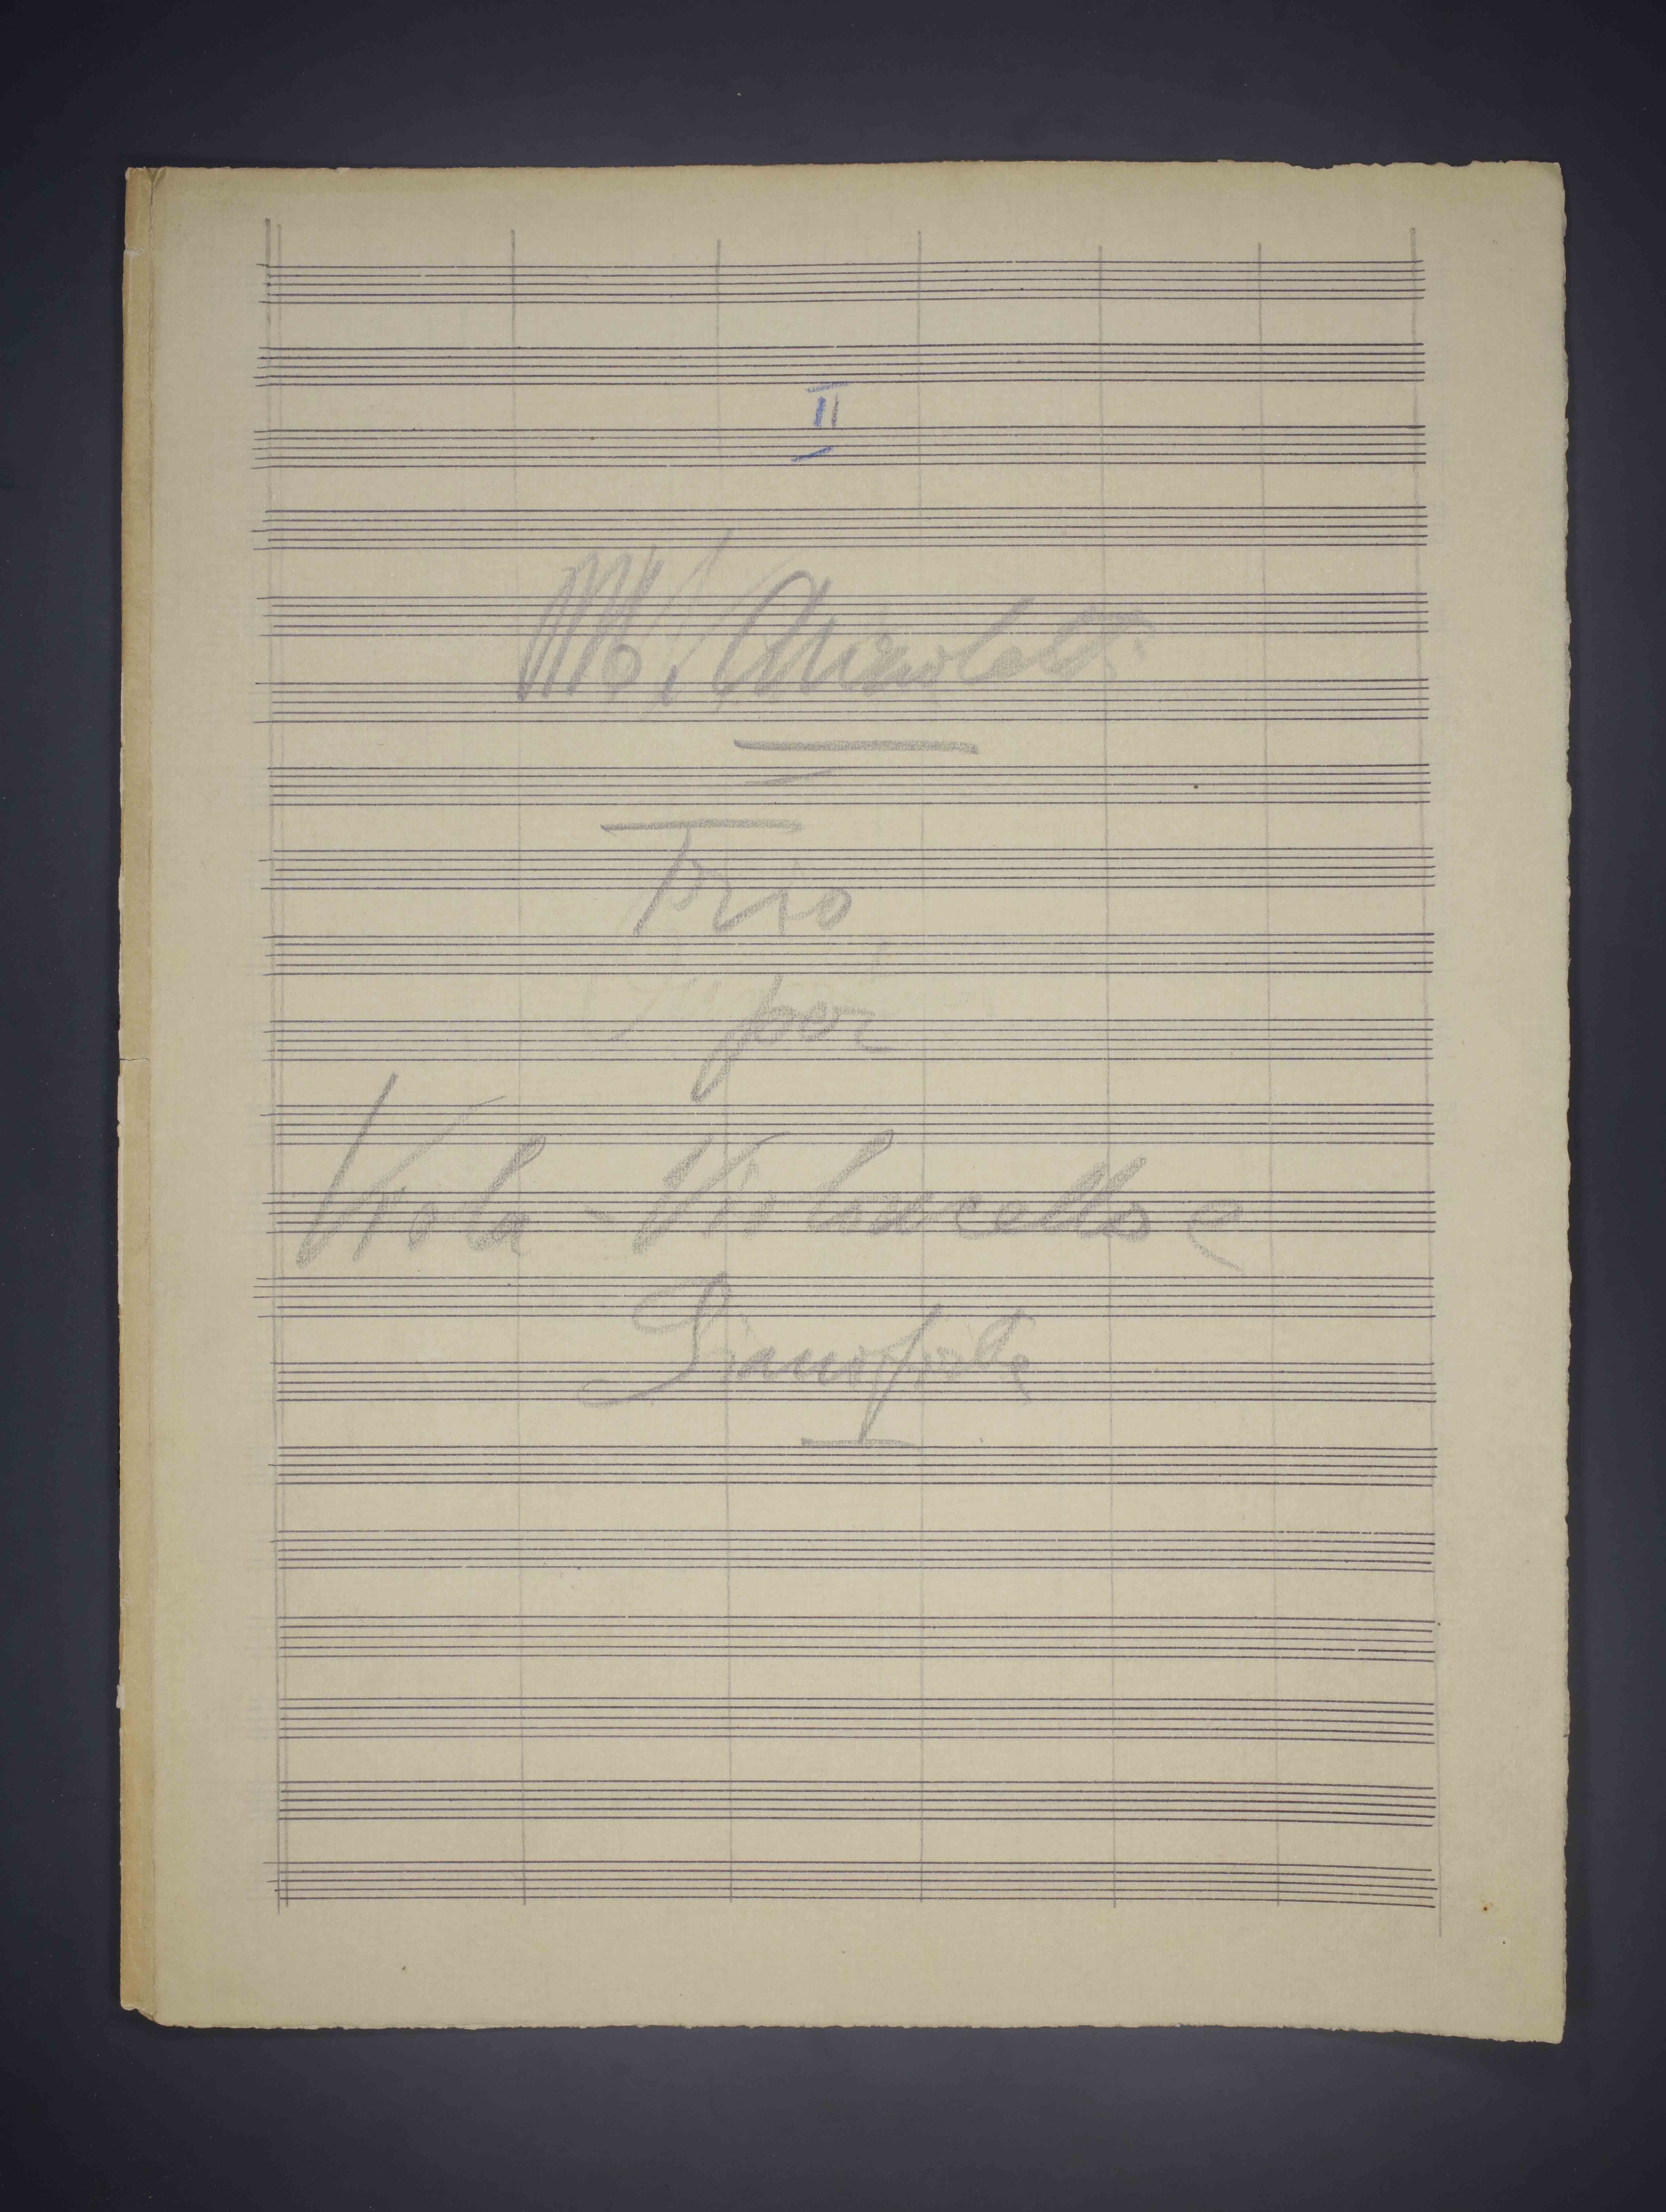 II
Trio
per
Viola - Violoncello e
Pianoforte